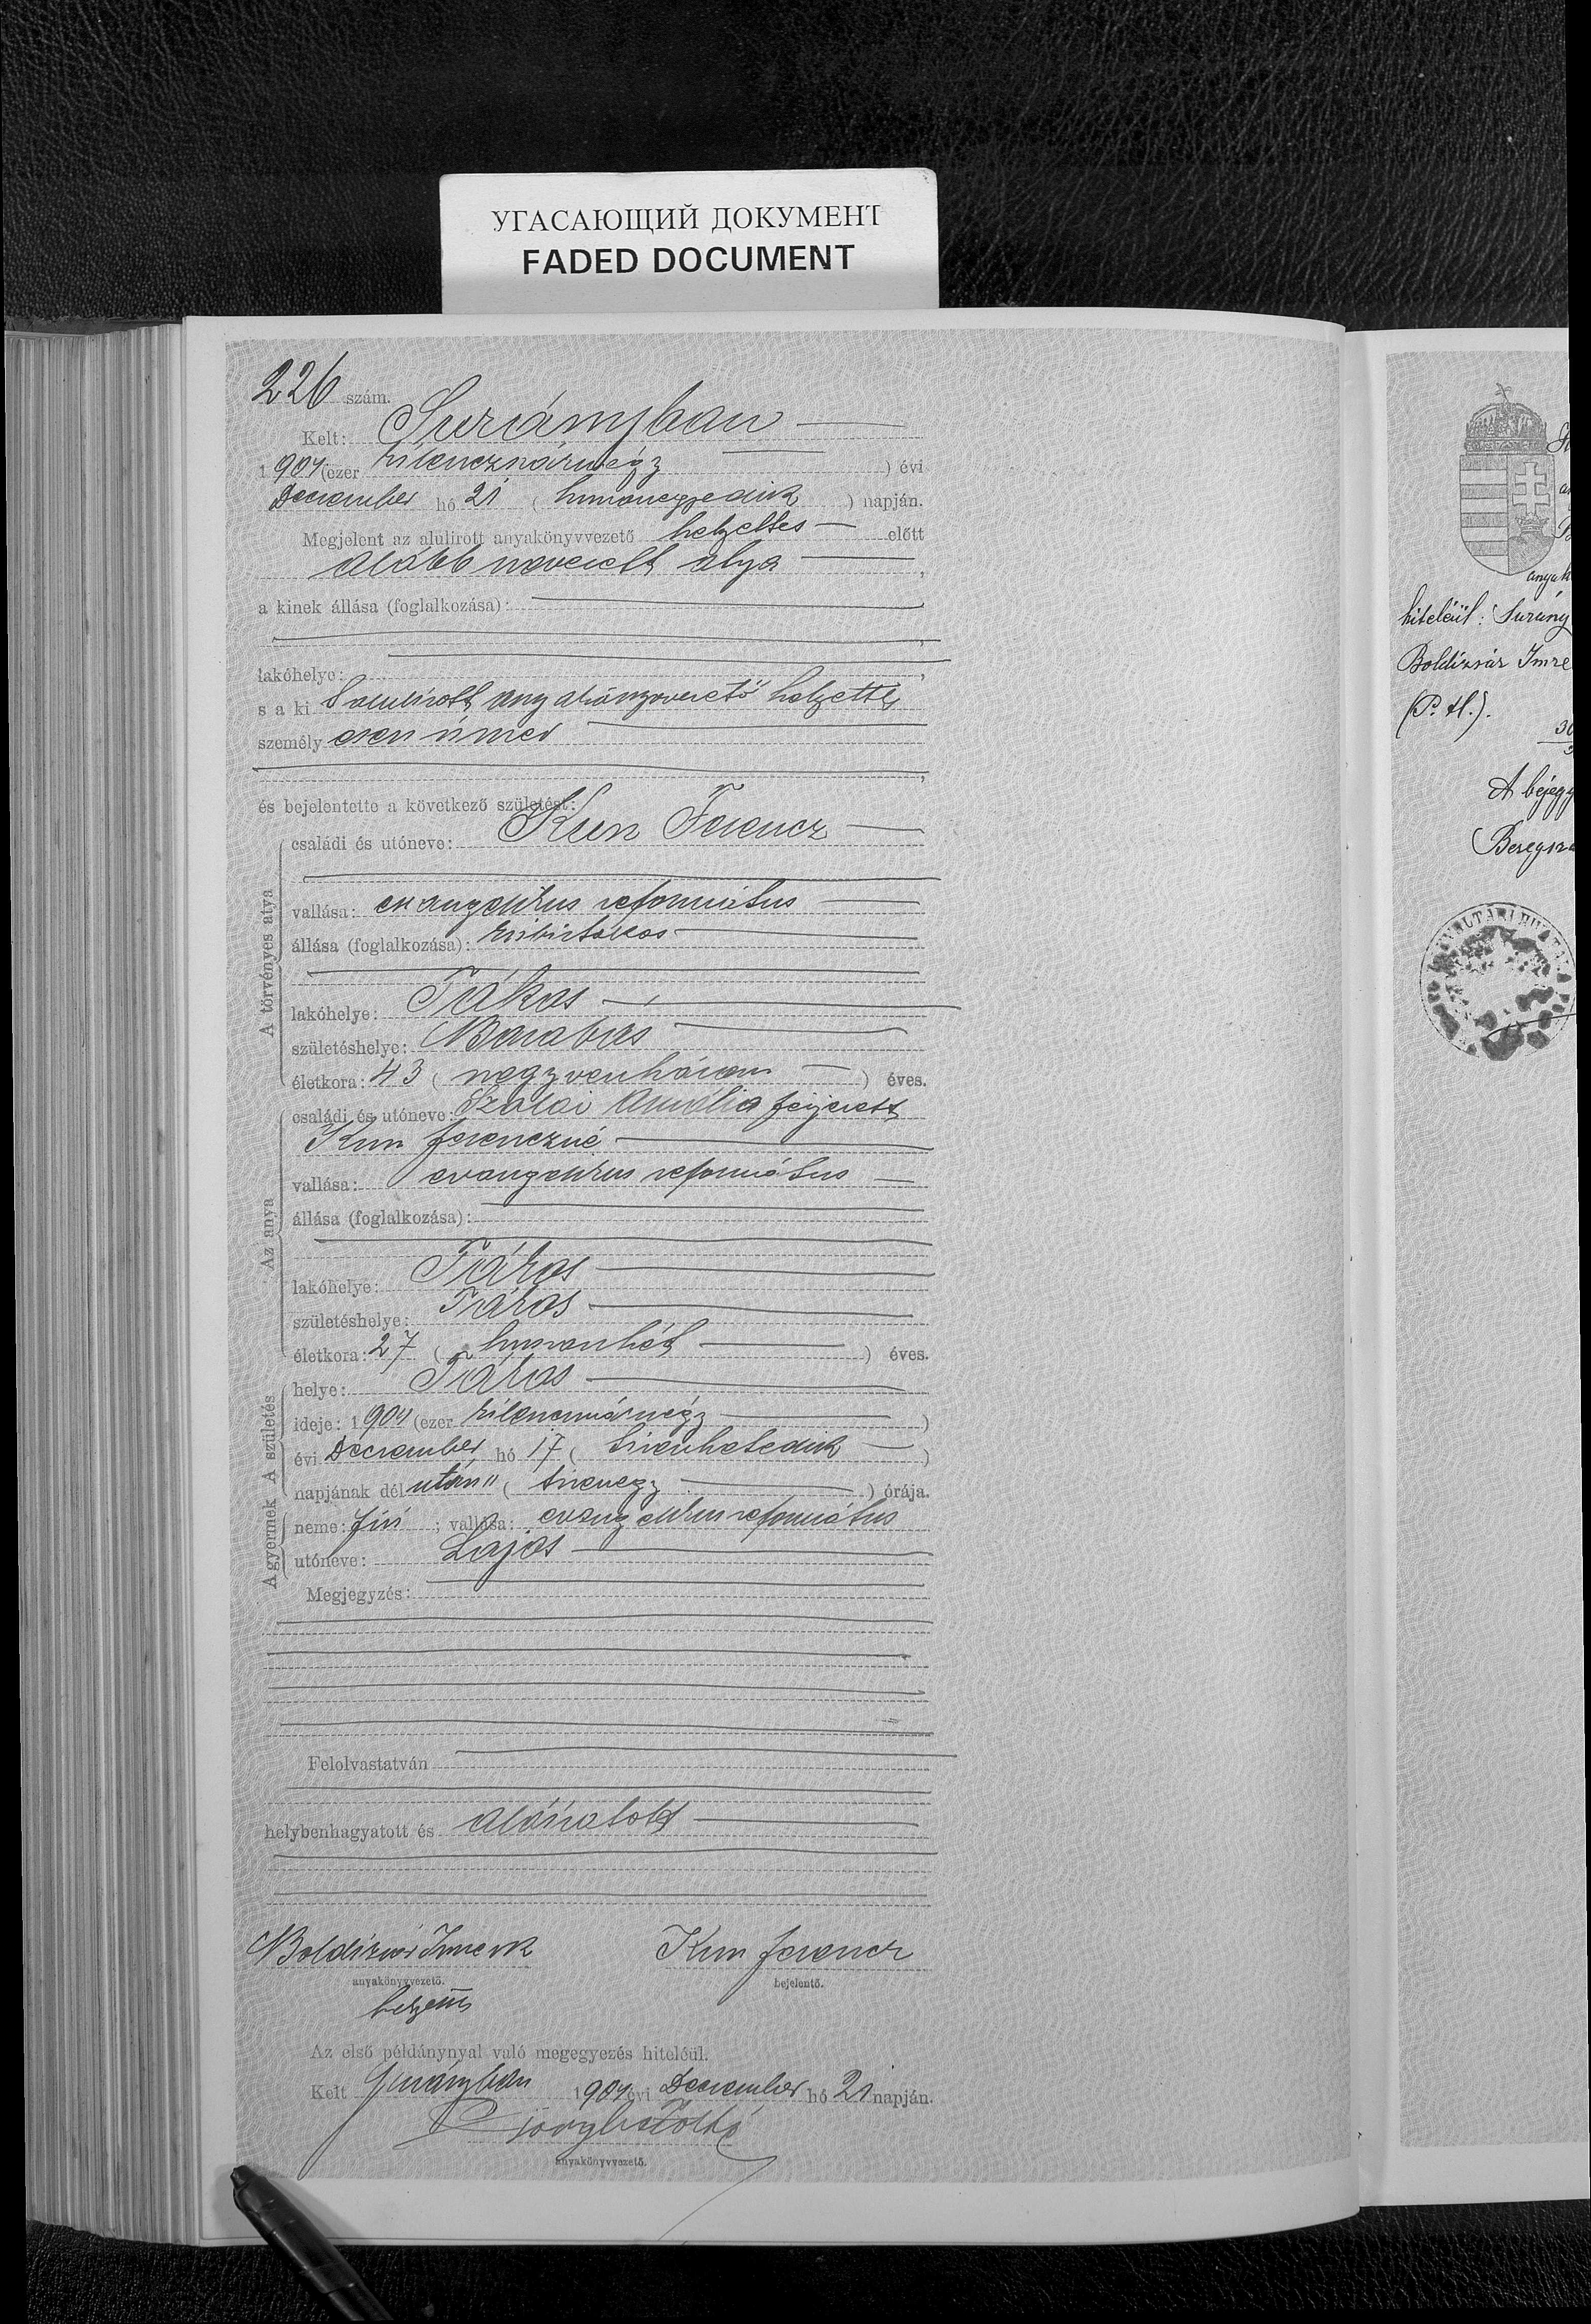 УГАСАЮЩИЙ ДОКУМЕНТ
FADED DOCUMENT
226 szám.
Kelt: Surányban
1904 (ezer kilenczszáznégy ) évi
December hó 21 ( huszonegyedik ) napján.
Megjelent az alulirott anyakönyvvezető helyettes előtt
alább nevezett atya ,
a kinek állása (foglalkozása):
,
lakóhelye: ,
s a ki alulirott anyakönyvvezető helyettes
személyesen ismer
,
és bejelentette a következő születést:
A törvényes atya
családi és utóneve: Kun Ferencz
vallása: evangelikus református
állása (foglalkozása): kisbirtokos
lakóhelye: Tákos
születéshelye: Barabás
életkora: 43 ( negyvenhárom ) éves.
Az anya
családi és utóneve: Szalai Amália férjezett
Kun Ferenczné
vallása: evangelikus református
állása (foglalkozása):
lakóhelye: Tákos
születéshelye: Tákos
életkora: 27 ( huszonhét ) éves.
A születés
helye: Tákos
ideje: 1904 (ezer kilenczszáznégy )
évi December hó 17 ( tizenhetedik )
napjának délután 11 ( tizenegy ) órája.
A gyermek
neme: fiú ; vallása: evangelikus református
utóneve: Lajos
Megjegyzés:
Felolvastatván
helybenhagyatott és aláiratott
Boldizsár Imre sk Kun Ferencz
anyakönyvvezető. bejelentő.
helyettes
Az első példánynyal való megegyezés hiteléül.
Kelt Surányban 1904 évi December hó 21 napján.
anyakönyvvezető.
anyak
hiteléül: Surány
Boldizsár Imre
(P. H.).
30
A bejegy
Beregsz